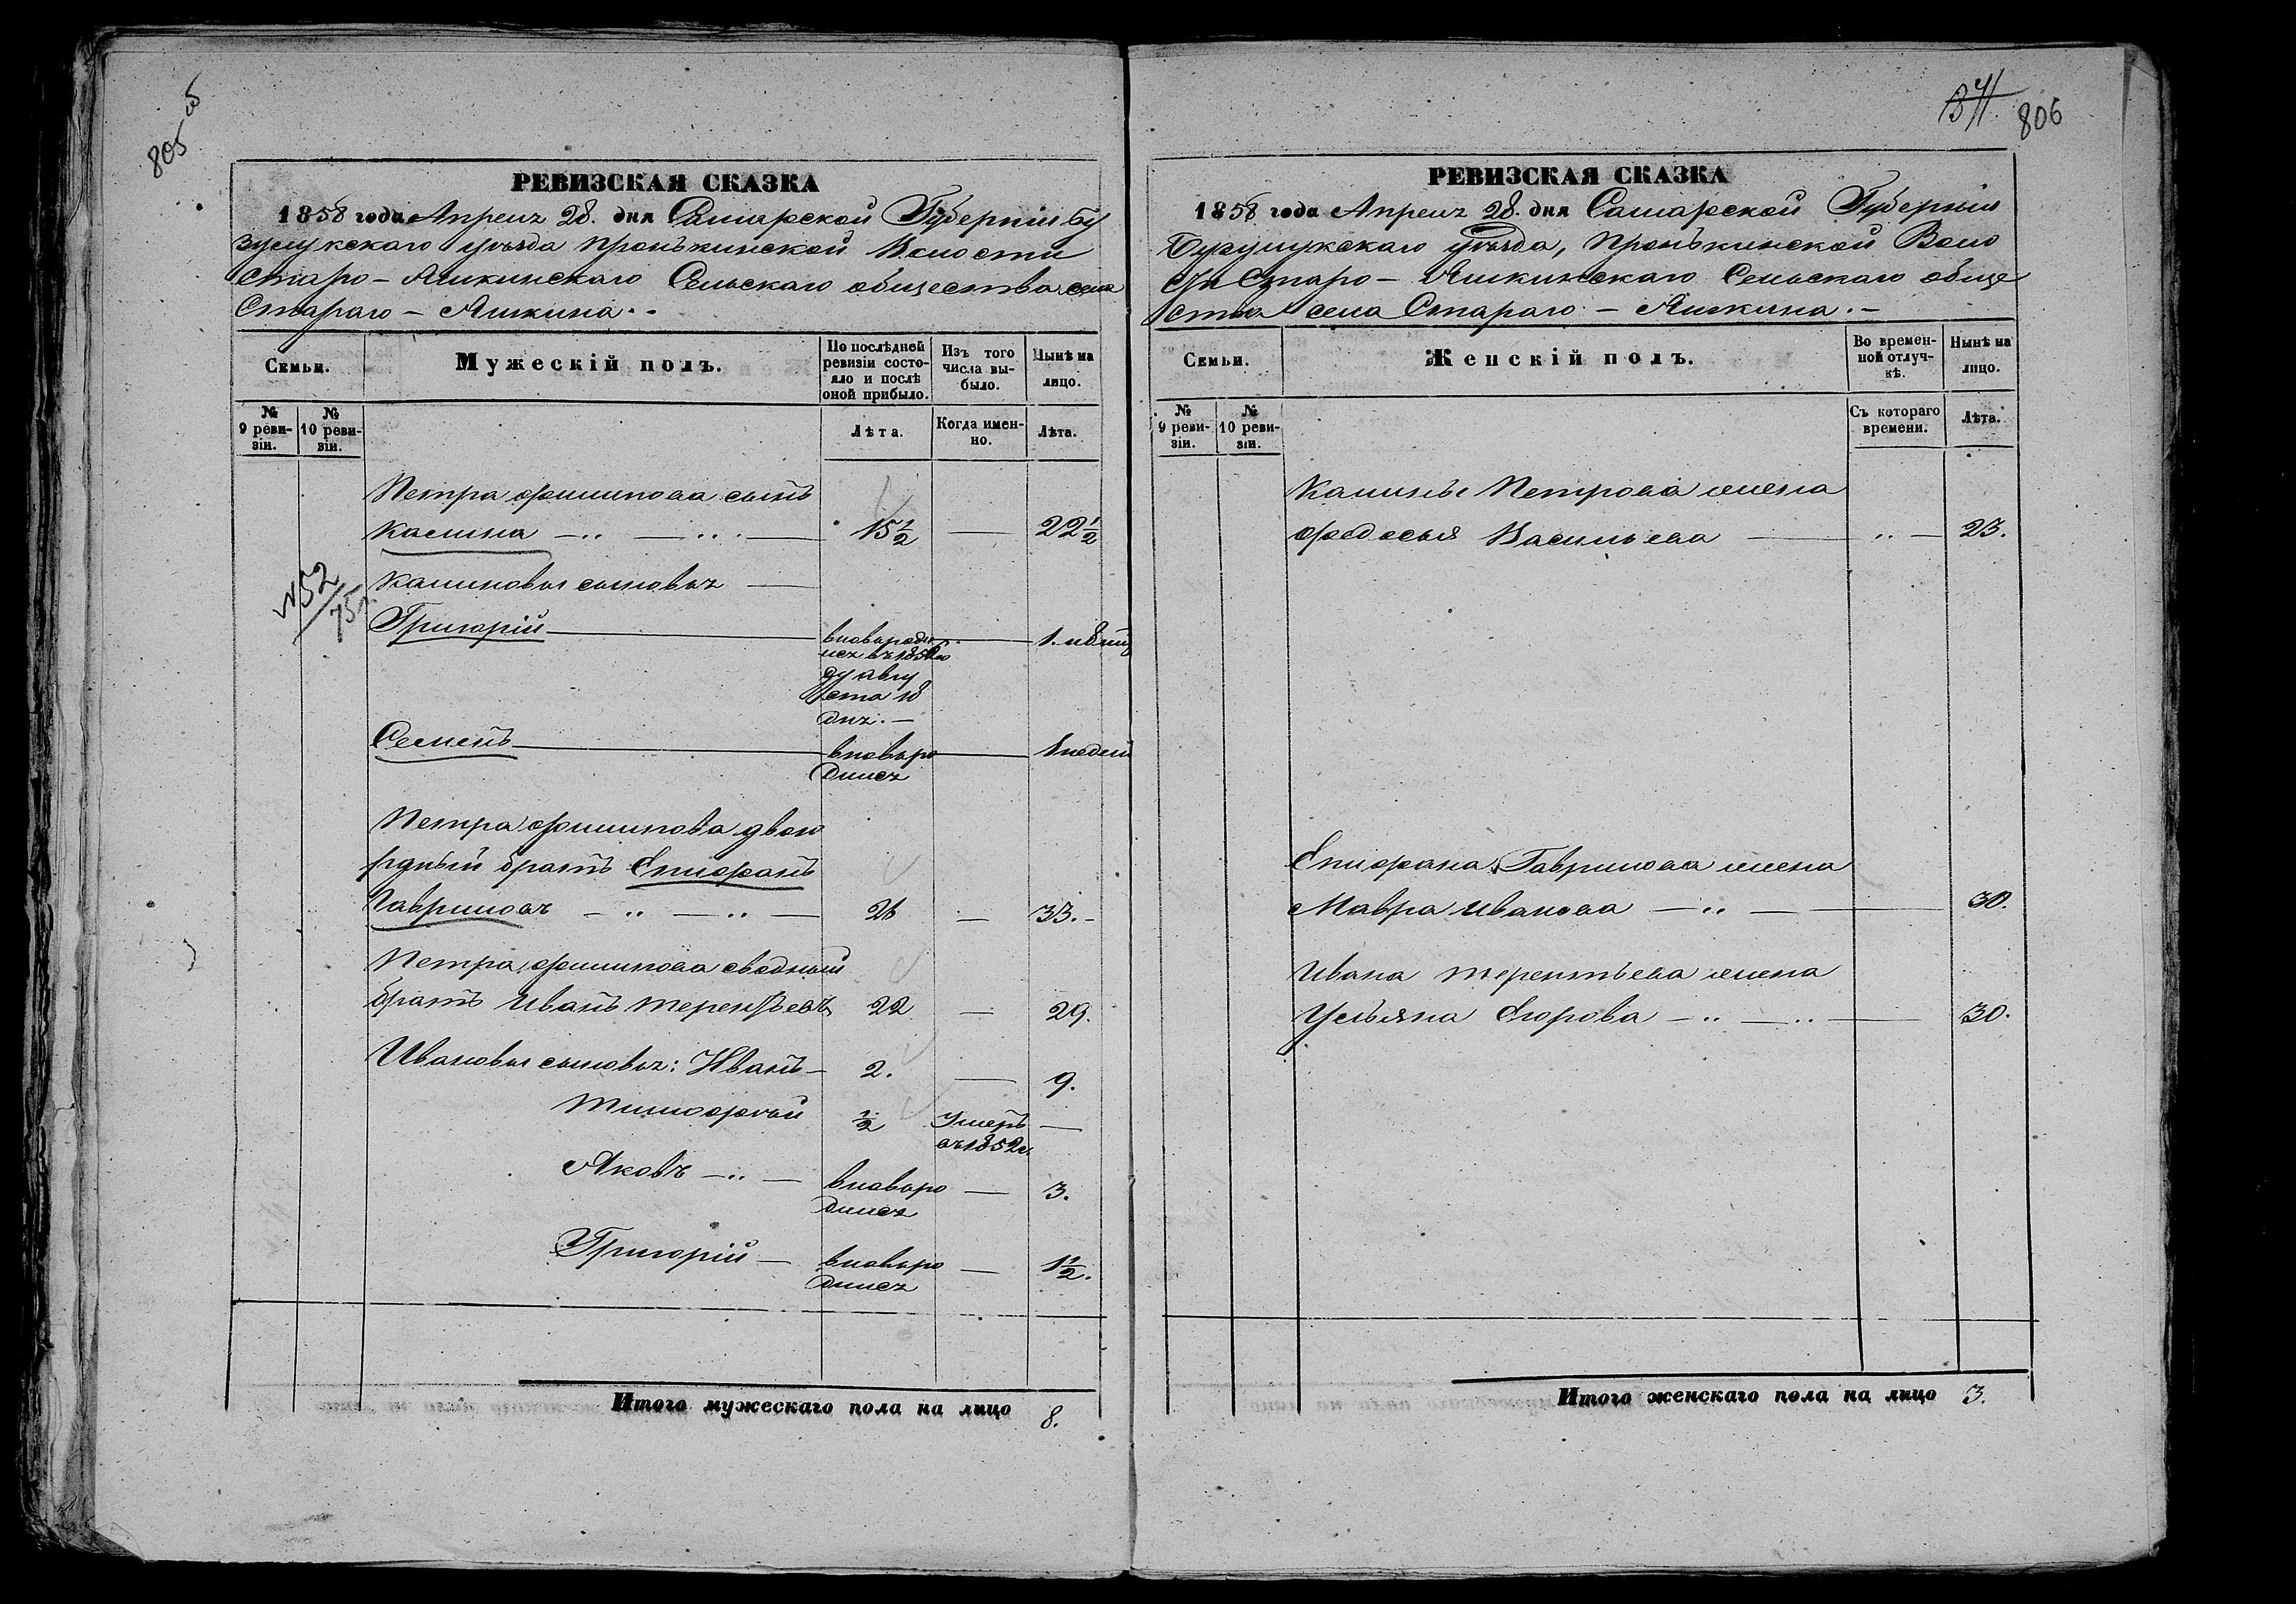 805 б
РЕВИЗСКАЯ СКАЗКА
1858 года Апреля 28. дня Самарской Губерніи Бу
зулукскаго уѣзда Пронькинской Волости
Старо-Яшкинскаго Сельскаго общества села
Стараго-Яшкина.
Семьи.
Мужескій полъ.
По послѣдней ревизіи состояло и послѣ оной прибыло.
Изъ того числа выбыло.
Нынѣ на лицо.
№ 9 ревизіи.
№ 10 ревизіи.
Лѣта.
Когда именно.
Лѣта.
Петра Филипова сынъ
Калина — 15 1/2 — 22 1/2
№52
75
Калиновы сыновья —
Григорій — вновь роди — 1.
лся въ 185 го
ду авгу
ста 18
дня. —
Семенъ — вновь ро — недели
дился
Петра Филипова двою
рдный братъ Епифанъ
Гавриловъ — 26 — 33. -
Петра Филипова сводный
братъ Иванъ Терентьевъ 22 — 29.
Ивановы сыновья: Иванъ — 2. — 9.
Тимофей 1/2 Умеръ —
въ 1852 г.
Яковъ — вновь ро — 3.
дился
Григорій — вновь ро — 1 1/2.
дился
Итого мужескаго пола на лицо 8.
341. 806
РЕВИЗСКАЯ СКАЗКА
1858 года Апреля 28. дня Самарской Губерніи
Бузулукскаго уѣзда, Пронькинской Воло
сти Старо-Яшкинскаго Сельскаго обще
ства села Стараго-Яшкина. —
Семьи.
Женскій полъ.
Во временной отлучкѣ.
Нынѣ на лицо.
№ 9 ревизіи.
№ 10 ревизіи.
Съ котораго времени.
Лѣта.
Калины Петрова жена
Федосья Васильева — 23.
Епифана Гаврилова жена
Мавра Иванова — 30.
Ивана Терентьева жена
Ульяна Егорова — 30.
Итого женскаго пола на лицо 3.